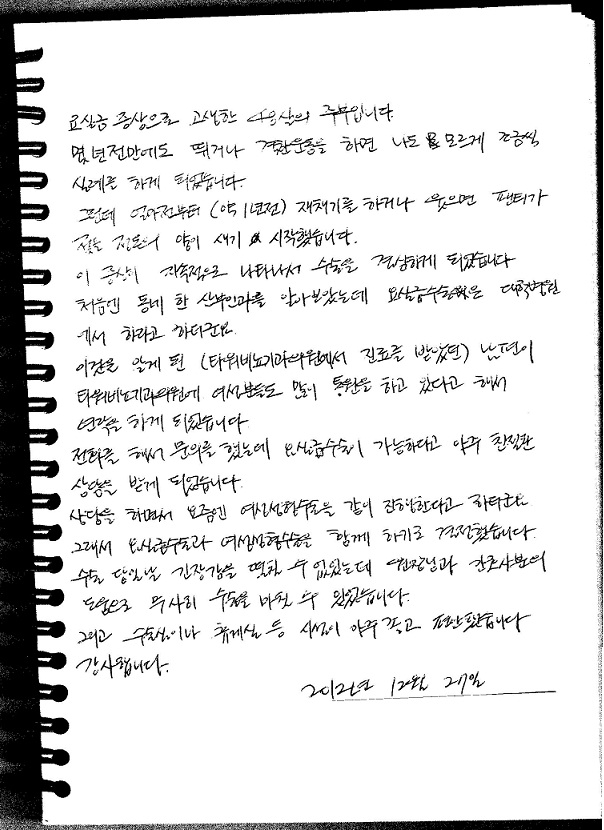 요실금 증상으로 고생한 40살의 주부입니다.
몇년전만에도 뛰거나 격한운동을 하면 나도 모르게 조금씩
실례를 하게 되었습니다.
그런데 얼마전부터 (약 1년전) 재채기를 하거나 웃으면 팬티가
젖는 정도의 양이 새기 시작했습니다.
이 증상이 지속적으로 나타나서 수술을 결심하게 되었습니다
처음엔 동네 한 산부인과를 알아보았는데 요실금수술은 대학병원
에서 하라고 하더군요.
이것을 알게 된 (타워비뇨기과의원에서 진료를 받았던) 남편이
타워비뇨기과의원에 여성분들도 많이 통원을 하고 있다고 해서
연락을 하게 되었습니다.
전화를 해서 문의를 했는데 요실금수술이 가능하다고 아주 친절한
상담을 받게 되었습니다.
상담을 하면서 요즘엔 여성성형수술을 같이 진행한다고 하더군요.
그래서 요실금수술과 여성성형수술을 함께 하기로 결정했습니다.
수술 당일날 긴장감을 떨칠 수 없었는데 원장님과 간호사분의
도움으로 무사히 수술을 마칠 수 있었습니다.
그리고 수술실이나 휴게실 등 시설이 아주 좋고 편안했습니다
감사합니다.
2012년 12월 27일